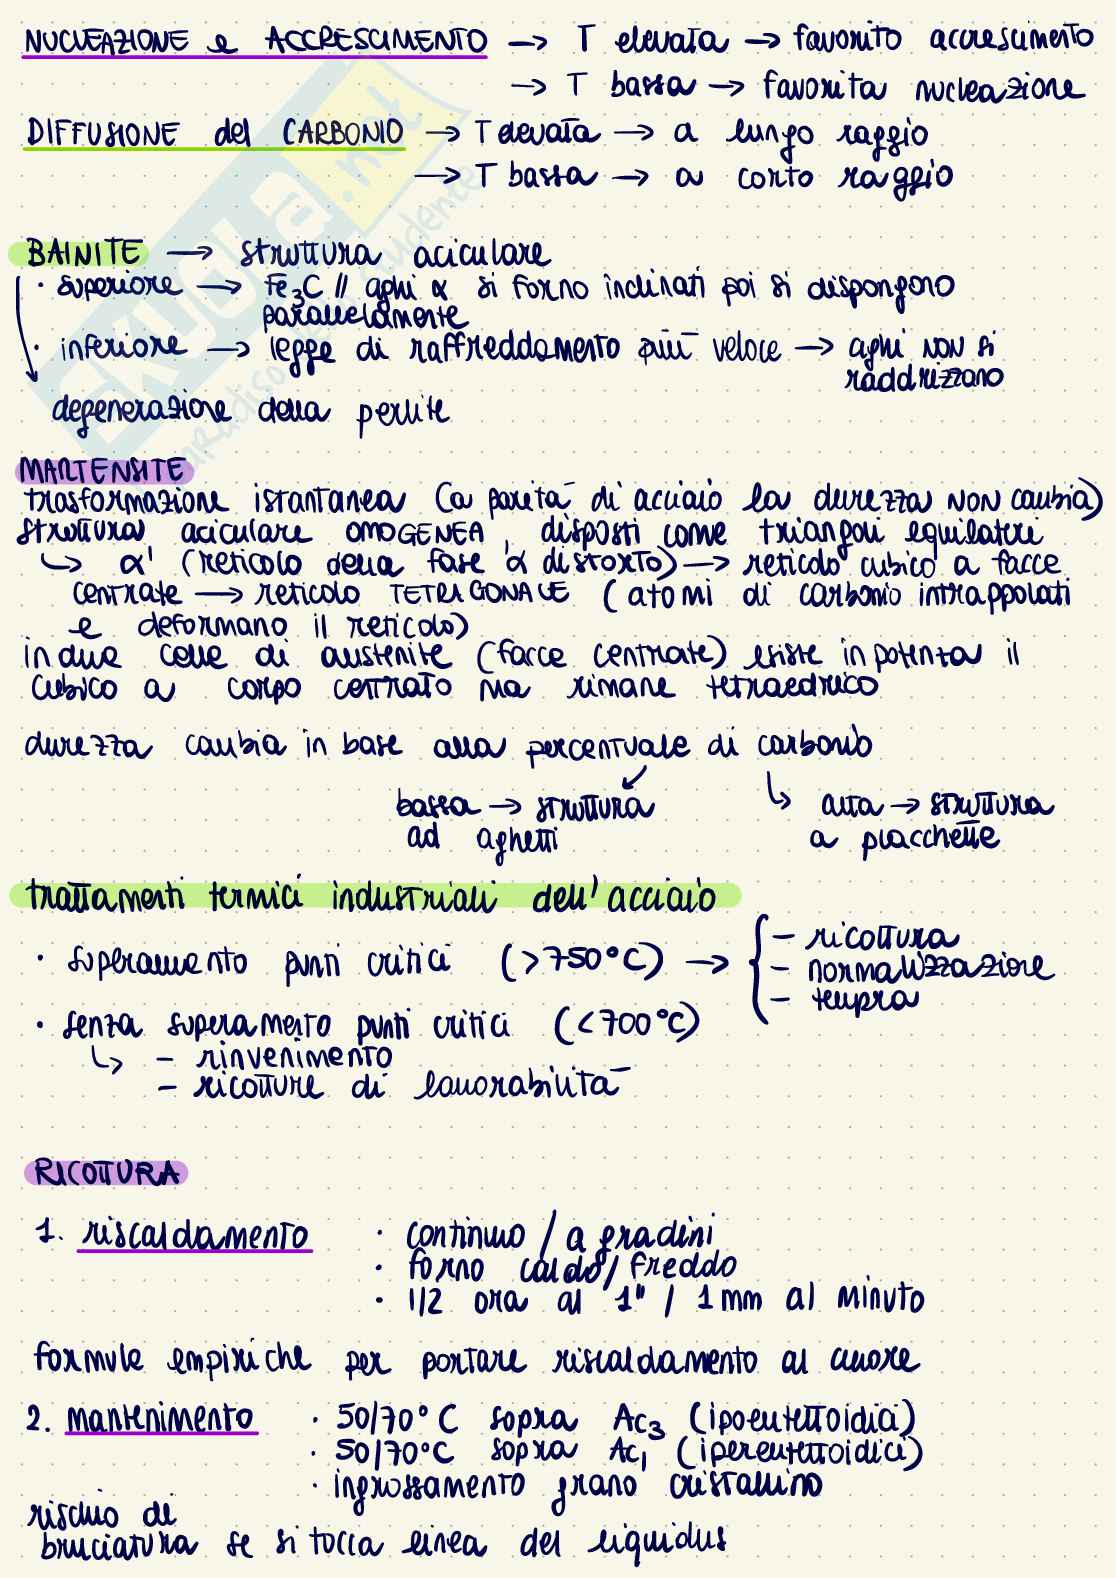 NUCLEAZIONE e ACCRESCIMENTO → T elevata → favorito accrescimento
→ T bassa → favorita nucleazione
DIFFUSIONE del CARBONIO → T elevata → a lungo raggio
→ T bassa → a corto raggio
BAINITE → struttura aciculare
· superiore → Fe3C // aghi α si forno inclinati poi si dispongono
parallelamente
· inferiore → legge di raffreddamento più veloce → aghi NON si
raddrizzano
degenerazione della perlite
MARTENSITE
trasformazione istantanea (a parità di acciaio la durezza NON cambia)
struttura aciculare OMOGENEA, disposti come triangoli equilateri
↳ α' (reticolo della fase α distorto) → reticolo cubico a facce
centrate → reticolo TETRAGONALE (atomi di carbonio intrappolati
e deformano il reticolo)
in due celle di austenite (facce centrate) esiste in potenza il
cubico a corpo centrato ma rimane tetraedrico
durezza cambia in base alla percentuale di carbonio
bassa → struttura
ad aghetti
↳ alta → struttura
a placchette
trattamenti termici industriali dell'acciaio
· superamento punti critici (>750°C) → { - ricottura
- normalizzazione
- tempra
· senza superamento punti critici (<700°C)
↳ - rinvenimento
- ricotture di lavorabilità
RICOTTURA
1. riscaldamento · continuo / a gradini
· forno caldo/freddo
· 1/2 ora al 1" / 1mm al minuto
formule empiriche per portare riscaldamento al cuore
2. mantenimento · 50/70°C sopra Ac3 (ipoeutettoidici)
· 50/70°C sopra Ac1 (ipereutettoidici)
· ingrossamento grano cristallino
rischio di
bruciatura se si tocca linea del liquidus
skuola.net